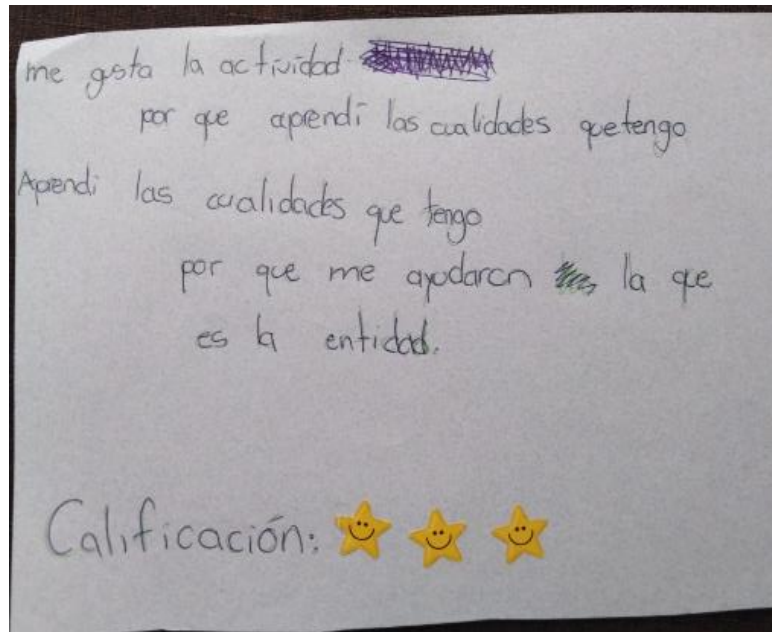 me gusta la actividad
por que aprendí las cualidades que tengo
Aprendi las cualidades que tengo
por que me ayudaron la que
es la entidad.
Calificación: